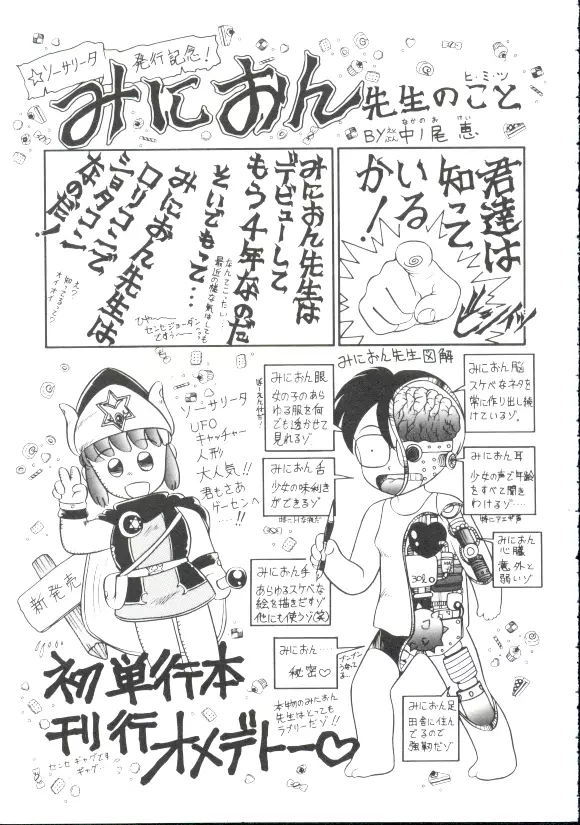 ☆ソーサリータ
発行記念！
みにおん先生のこと
ヒ・ミ・ツ
BY えぶぶん 中ノ尾 恵
なかのお けい
君達は
知って
いる
か！
ビシィッ
みにおん先生は
デビューして
もう4年なのだ
そいでもって…
なんてこったい…
最近の様な気はしても
みにおん先生は
ロリコンで
ショタコン
なのだ！
ひゃ〜〜
センセジョーダン
ですぅ〜〜
えっ
知ってるって？
オイオイ
ソーサリータ
UFO
キャッチャー
人形
大人気!!
君もさあ
ゲーセンへ
…!!
新発売
初単行本
刊行オメデトー♡
センセギャグです
ギャグ…
みにおん先生図解
みにおん眼
女の子のあら
ゆる服を何
でも透かせて
見れるゾ
みにおん舌
少女の味利き
ができるゾ
みにおん手
あらゆるスケベな
絵を描きだすゾ
他にも使うゾ(笑)
みにおん…
秘密♡
本物のみにおん
先生はとっても
ラブリーだゾ!!
みにおん脳
スケベなネタを
常に作り出し続
けているゾ
みにおん耳
少女の声で年齢
をすべて聞き
わけるゾ…
特にアエギ声
みにおん
心臓
意外と
弱いゾ
みにおん足
田舎に住ん
でるので
強靭だゾ